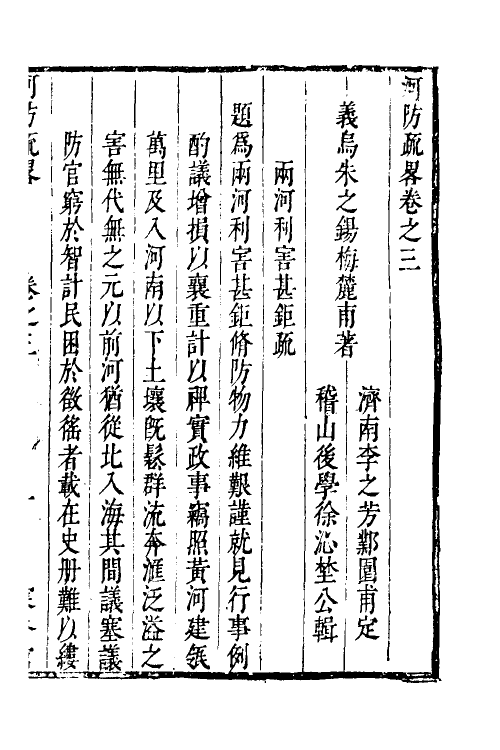 河防疏畧卷之三
濟南李之芳鄴園甫定
義烏朱之錫梅麓甫著
稽山後學徐沁埜公輯
兩河利害甚鉅疏
題爲兩河利害甚鉅脩防物力維艱謹就見行事例
酌議增損以襄重計以裨實政事竊照黃河建瓴
萬里及入河南以下土壤旣鬆群流奔滙泛溢之
害無代無之元以前河猶從北入海其間議塞議
防官窮於智計民困於徵徭者載在史册難以縷
河防疏畧
卷之三
一